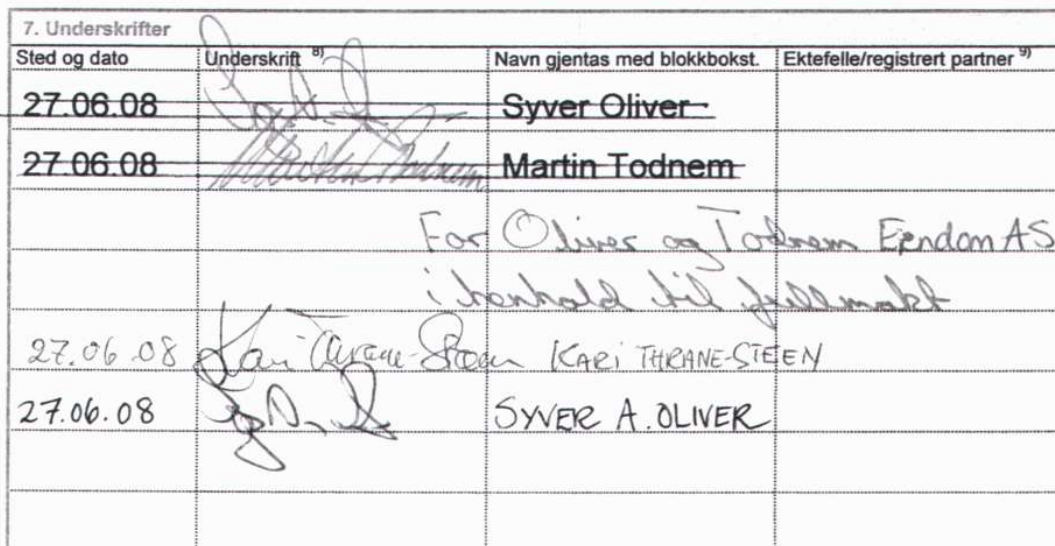 7. Underskrifter
Sted og dato Underskrift 8) Navn gjentas med blokkbokst. Ektefelle/registrert partner 9)
27.06.08 Syver Oliver
27.06.08 Martin Todnem Martin Todnem
For Oliver og Todnem Eiendom AS
i henhold til fullmakt
27.06.08 Kari Thrane-Steen KARI THRANE-STEEN
27.06.08 SYVER A. OLIVER